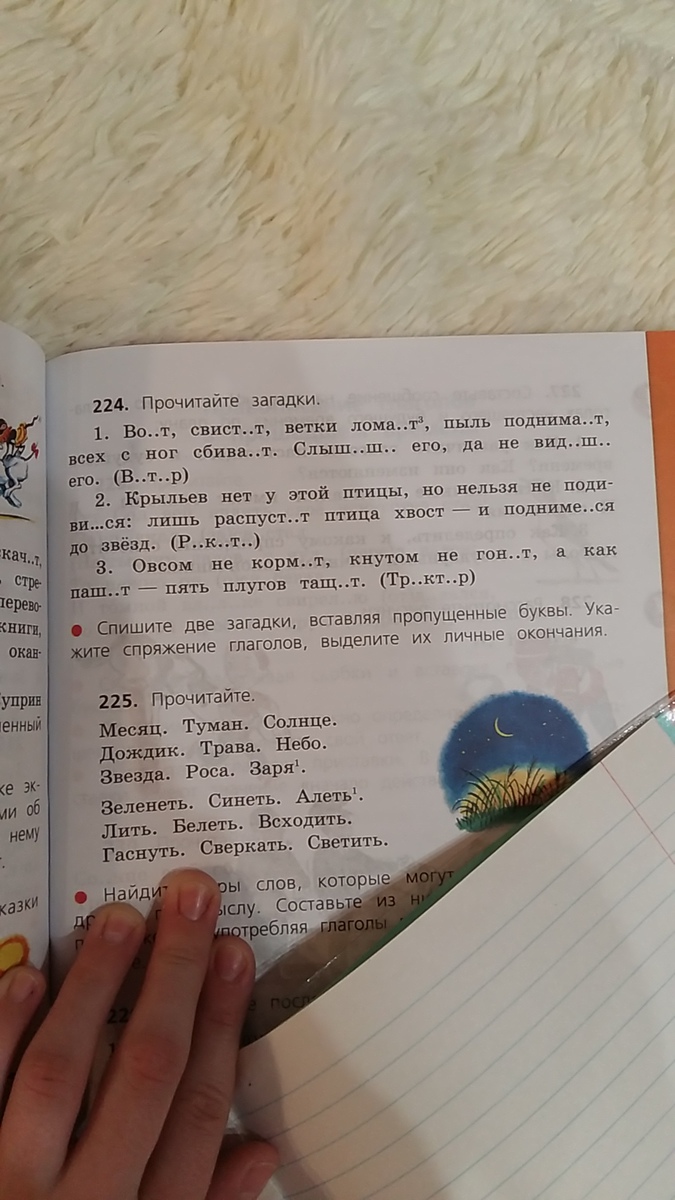 кач..т,
стре-
перево-
книги,
окан-
уприн
ке эк-
ми об
нему
казки
224. Прочитайте загадки.
1. Во..т, свист..т, ветки лома..т³, пыль поднима..т,
всех с ног сбива..т. Слыш..ш.. его, да не вид..ш..
его. (В..т..р)
2. Крыльев нет у этой птицы, но нельзя не поди-
ви...ся: лишь распуст..т птица хвост — и подниме..ся
до звёзд. (Р..к..т..)
3. Овсом не корм..т, кнутом не гон..т, а как
паш..т — пять плугов тащ..т. (Тр..кт..р)
● Спишите две загадки, вставляя пропущенные буквы. Ука-
жите спряжение глаголов, выделите их личные окончания.
225. Прочитайте.
Месяц. Туман. Солнце.
Дождик. Трава. Небо.
Звезда. Роса. Заря¹.
Зеленеть. Синеть. Алеть¹.
Лить. Белеть. Всходить.
Гаснуть. Сверкать. Светить.
● Найдит ры слов, которые могут
др ыслу. Составьте из
употребляя глаголы